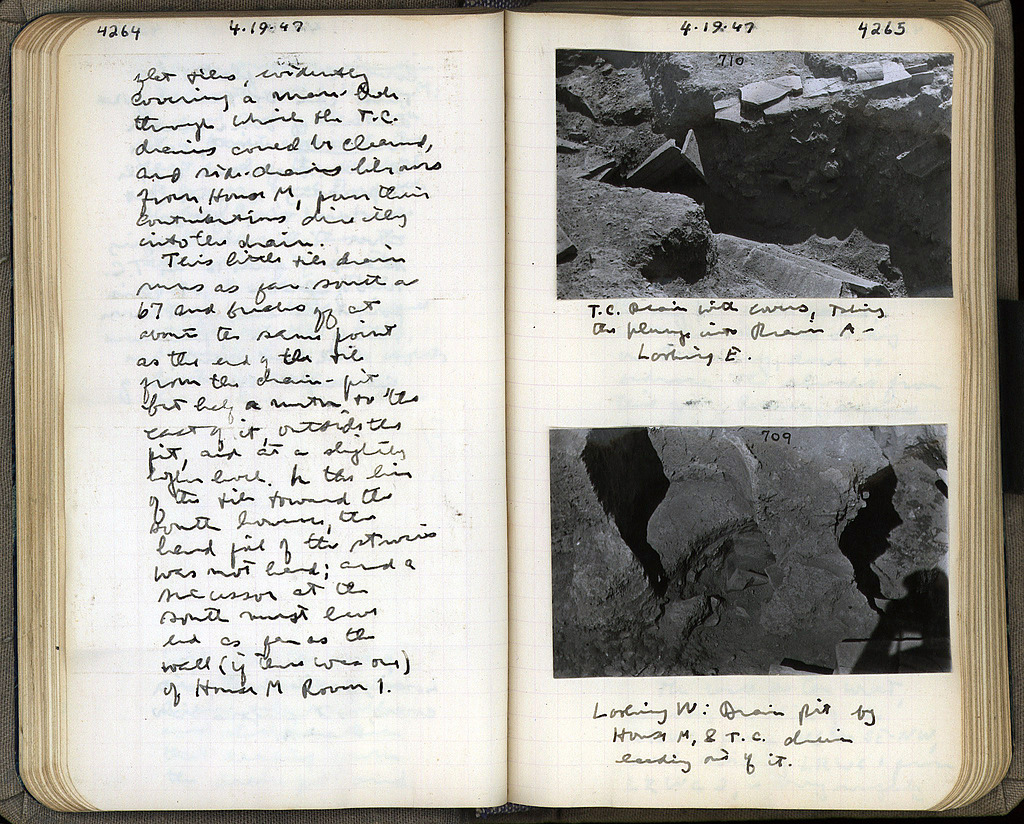 4264 4.19.47
flat tiles, evidently
covering a man-hole
through which the T.C.
drains could be cleaned,
and side-drains
from House M, pour their
contributions directly
into the drain.
This little tile drain
runs as far south as
67 and breaks off at
about the same point
as the end of the tile
from the drain-pit
but half a metre to the
east of it, outside the
pit, and at a slightly
higher level. In the line
of the tile toward the
south however, the
hard fill of the
was not hard; and a
at the
south must have
as far as the
wall (if there was one)
of House M Room 1.
4.19.47 4265
710
T.C. Drain with covers, taking
the plunge into Drain A –
Looking E.
709
Looking W: Drain pit by
House M, & T.C. drain
leading out of it.